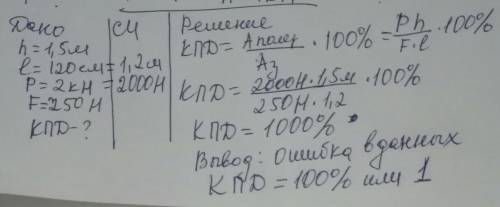 Дано
h = 1,5м
l = 120см = 1,2м
P = 2кН = 2000Н
F = 250Н
КПД - ?
СИ
Решение
КПД = Aполез/Aз · 100% = Ph/F·l · 100%
КПД = 2000Н · 1,5м/250Н · 1,2 · 100%
КПД = 1000%
Вывод: Ошибка в данных
КПД = 100% или 1